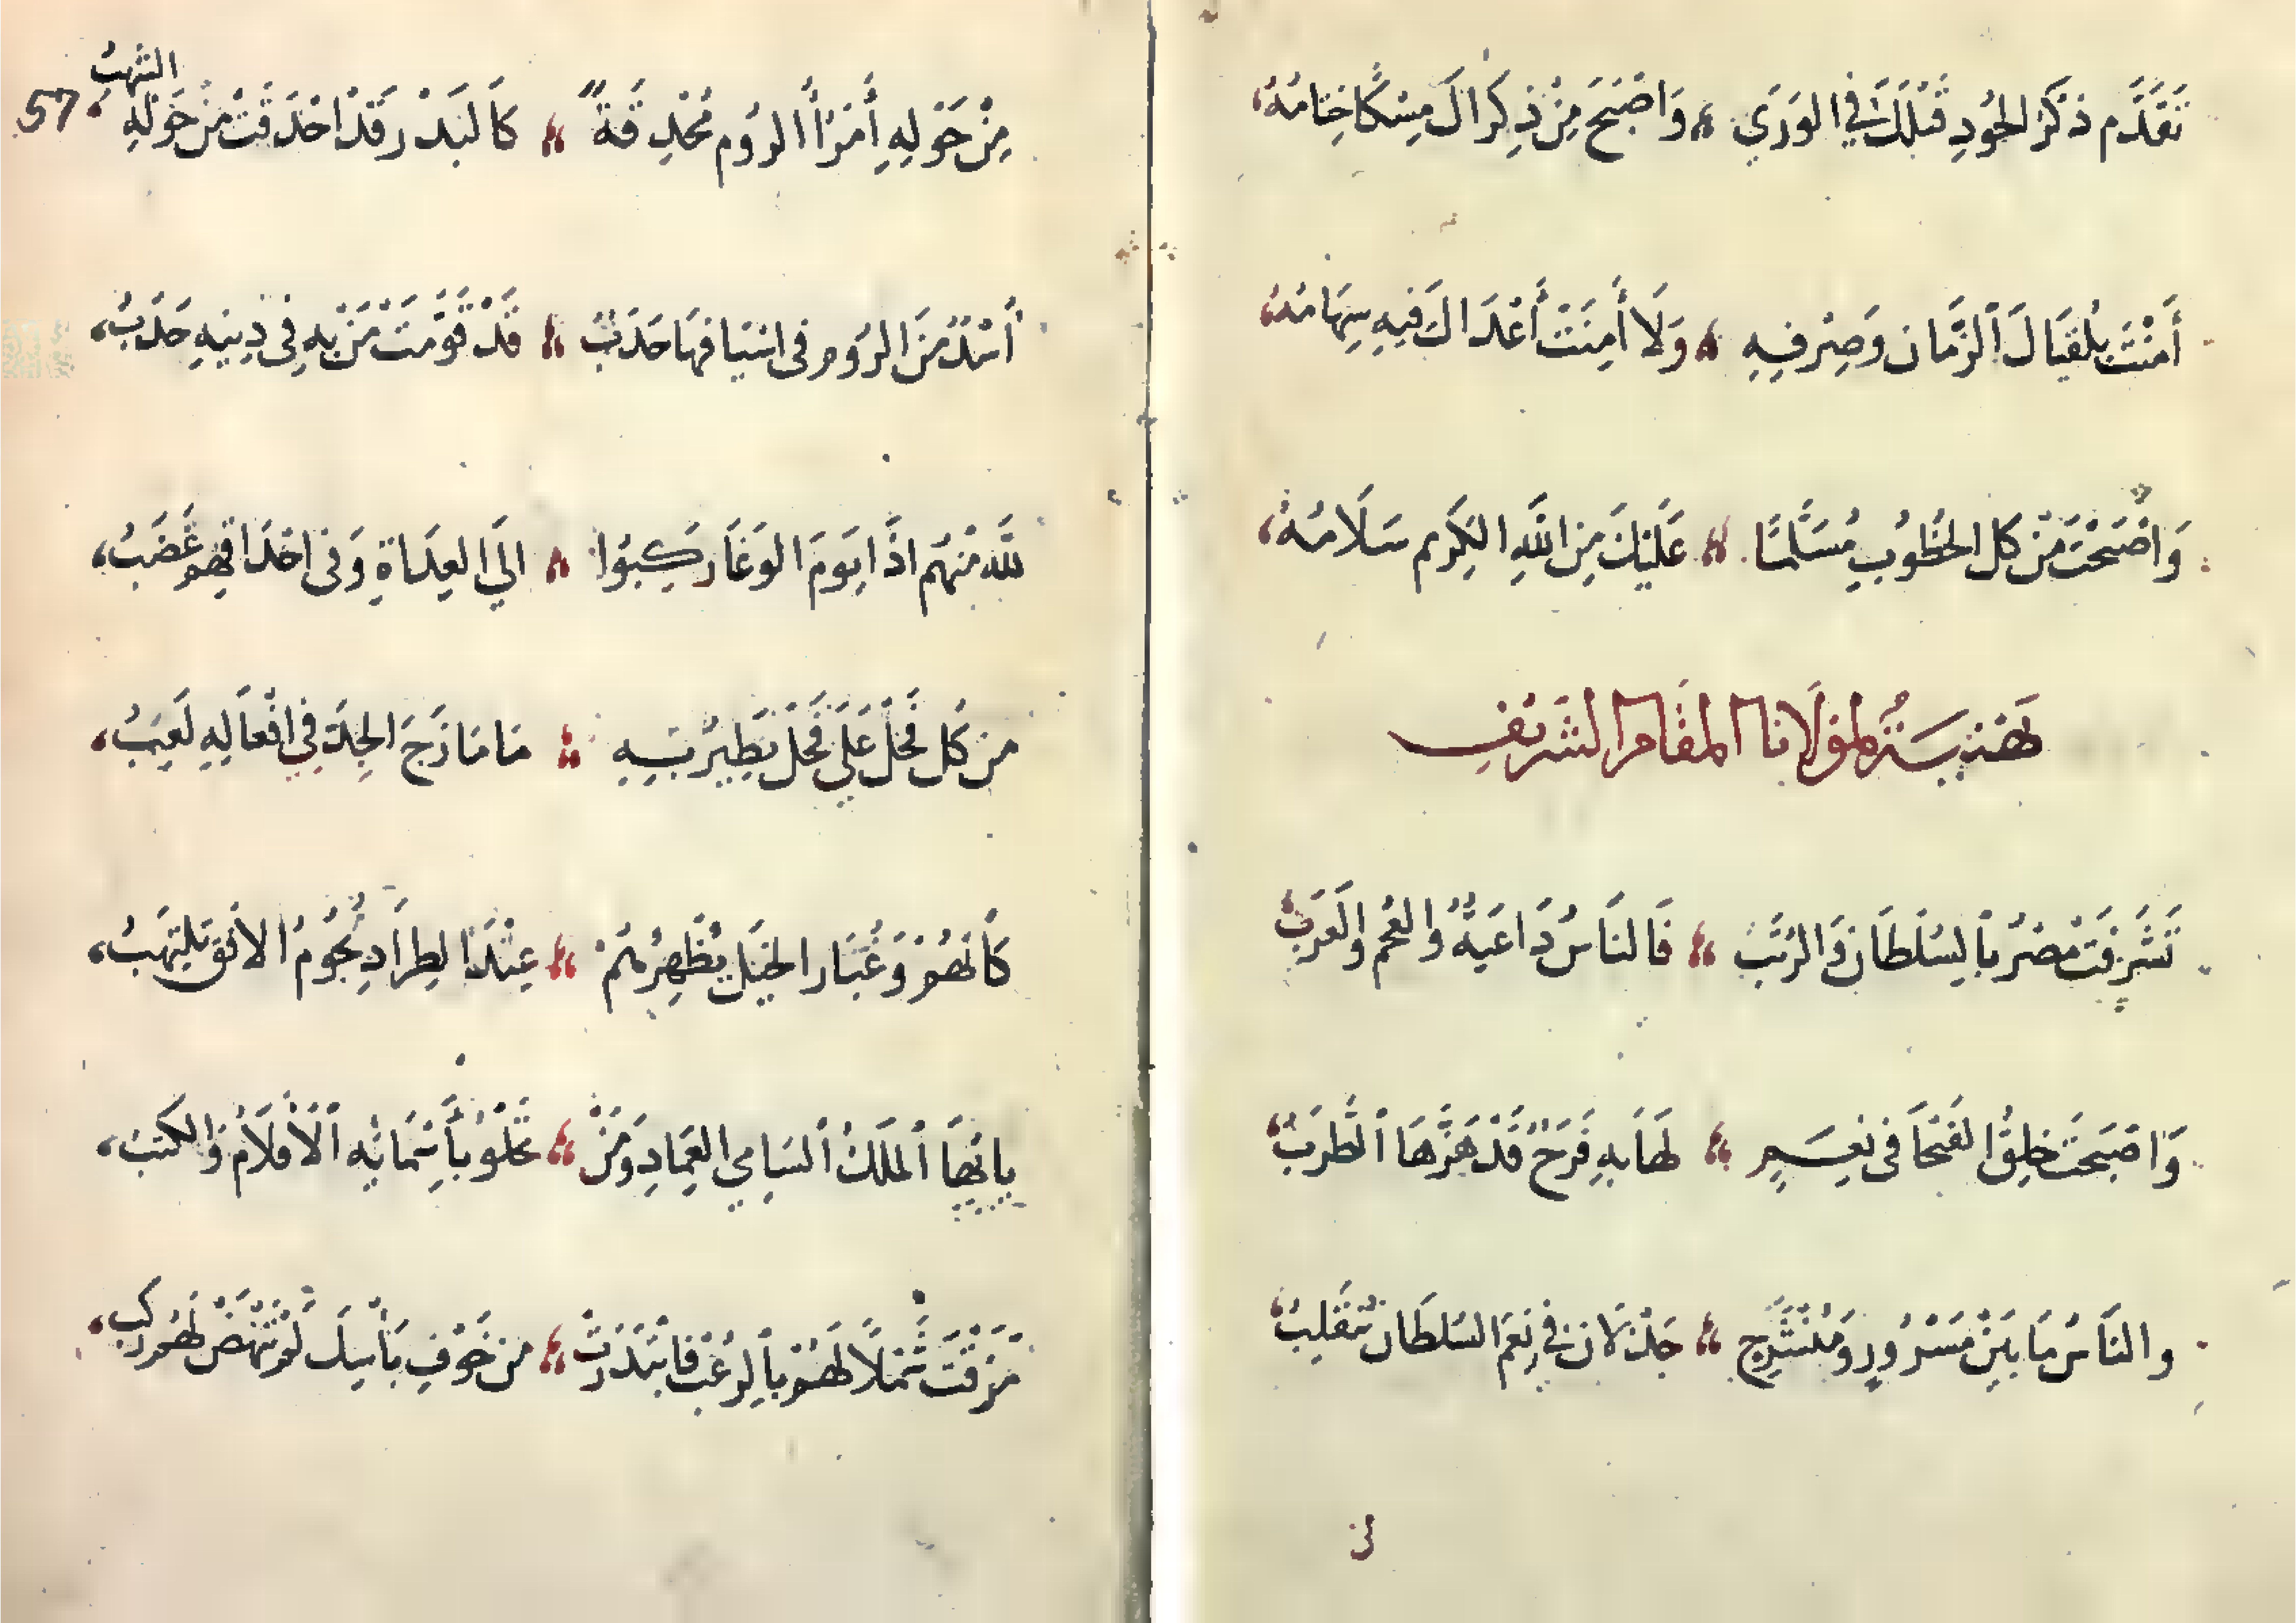 تَقَدَّم ذكرُ الجُودِ قَبْلَكَ في الوَرَي ؞ وَاصْبَحَ مِنْ ذِكرَاكَ مِسْكًا خِتَامُهُ
أَمِنْتَ بلُقيَاكَ ٱلزَّمَان وَصِرْفِهِ ؞ وَلَا أَمِنَتْ أَعْدَاكَ فِيهِ سِهَامُهُ
وَاصْبَحْتَ مَنْ كل الخُطُوبِ مُسَلَّمًا ؞ عَلَيْكَ مِنَ اللَّهِ الكَرِيم سَلَامُهُ
تَهْنِيَةٌ لمَوْلَانَا المَقَام الشَريفِ
تَشَرَّفَتْ مصْرُ بِالسُلْطَان وَالرُتَبُ ؞ فَالنَاسُ دَاعيَةٌ وَالعُجم والعَرَبُ
وَاصْبَحَتْ خلِقُ الفَتحَا في نعِيَمٍ ؞ لَهَا بِهِ فَرَحٌ قَدْ هَزَّهَا ٱلطَرَبُ
والنَاسُ مَا بَيْنَ مَسْرُورٍ وَمُنْشَرِحٍ ؞ جَذْلَان في نِعَم السُلطَان تَنقَلِبُ
في
57
مِنْ حَوْلِهِ أُمَرَاُ الرُوم مُحْدِقَةً ؞ كَالبَدْر قَدْ احْدَقَتْ مِنْ حَوْلِهِ الشُهبُ
أُسْدٌ مَنَ الرُوم في اسْيَافهَا حَدَبُ ؞ قَدْ قَوَّمَتْ مَنْ بِهِ فِي دِينِهِ حَدَبُ
لله مِنْهُم اذَا يَومَ الوَغَا رَكِبُوا ؞ الَي العِدَاةِ وَفى احْدَاقهم غَضَبُ
من كُل فَحْلٍ عَلَي فَحْل يَطِيرُ بِهِ ؞ مَا مَازَجَ الجِدَ فِي افْعَالِهِ لَعِبُ
كَأَنهُمْ وَغُبَار الخَيْل يُظْهِرُهُمْ ؞ عِنْدَ الطِرَادِ نُجُومُ الافق تَلتَهِبُ
يايُّهَا ٱلمَلكُ ٱلسَامِي العِمَادِ وَمَنْ ؞ تَحْلُو بأَسْمَائِه ٱلَاقْلَامُ وَالكتبُ
مَزقْتَ شَمْلًا لَهُمْ بِالرُعْب فَابْتَدَرَتْ ؞ من خَوْفِ بَأسِكَ لَمْ تَنْهَضْ لَهُم رُكَبُ